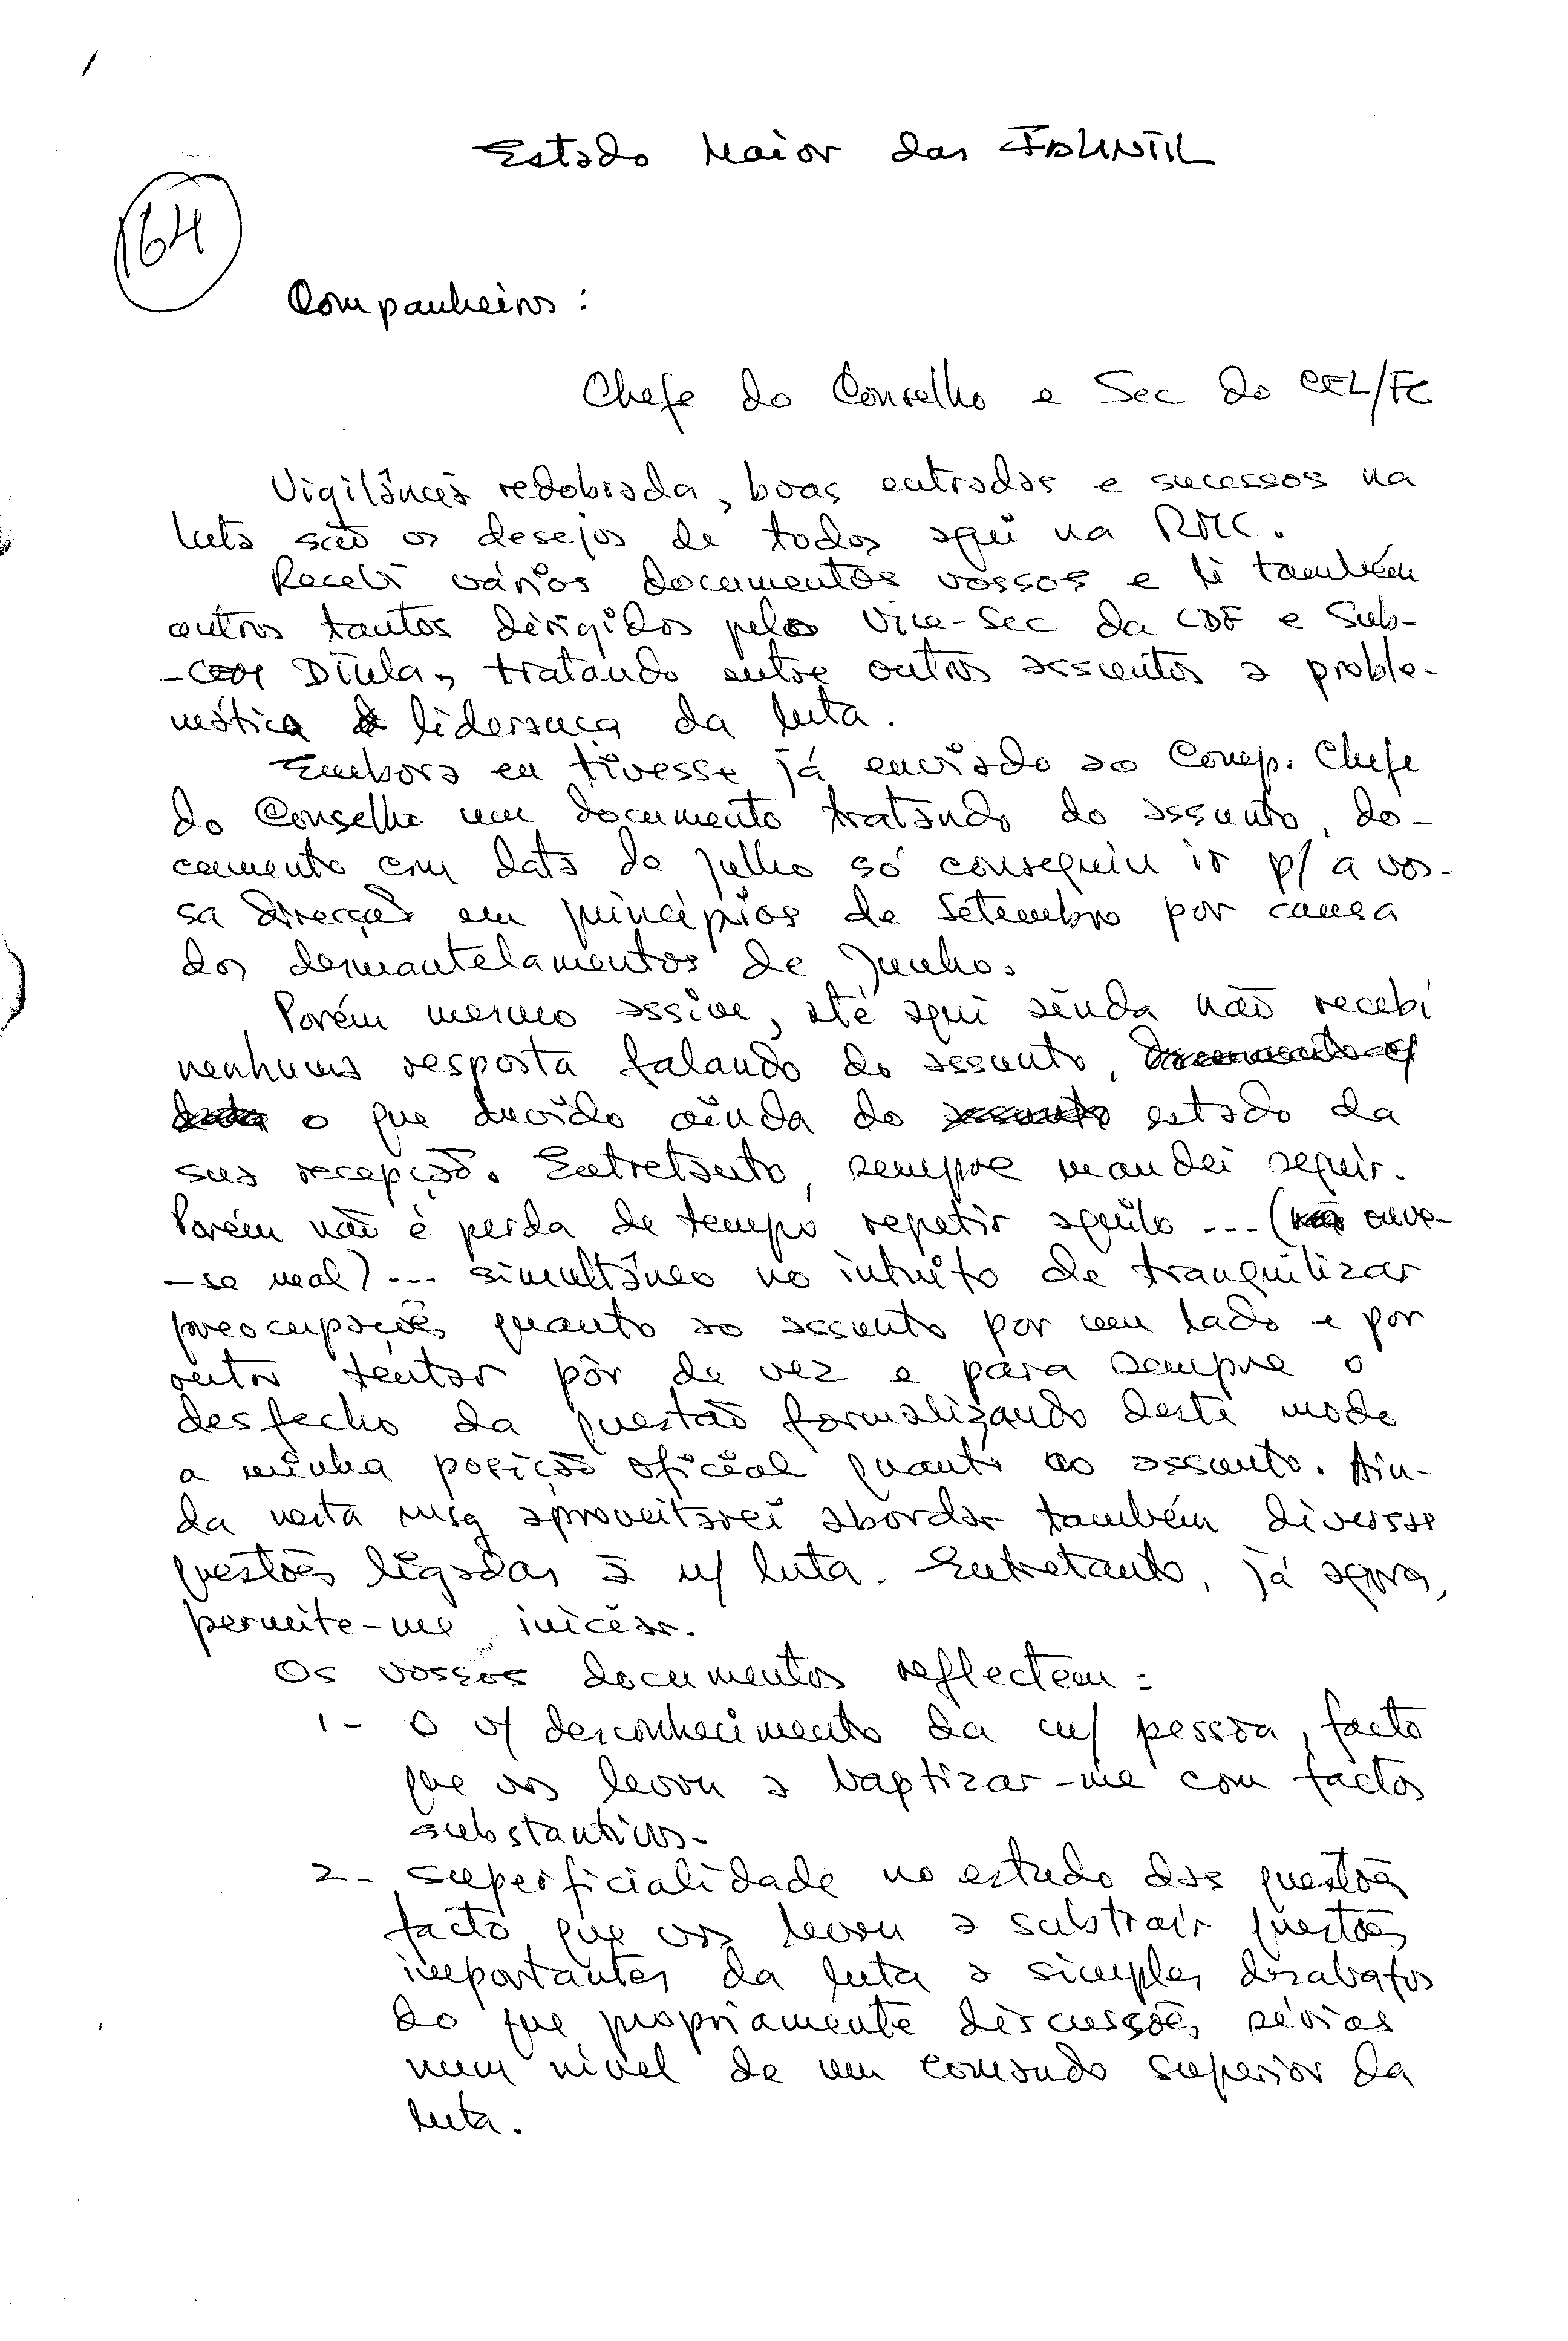 Estado Maior das FALINTIL
64
Companheiros :
Chefe do Conselho e Sec do CEL/FC
Vigilância redobrada, boas entradas e sucessos na
luta são os desejos de todos aqui na RMC.
Recebi vários documentos vossos e li também
outros tantos dirigidos pelo Vice-Sec da CDF e Sub-
- Dtula, tratando entre outros assuntos a proble-
mática liderança da luta.
Embora eu tivesse já enviado ao Comp. Chefe
do Conselho um documento tratando do assunto, do-
cumento com data de julho só conseguiu ir p/ a vos-
sa direcção em princípios de Setembro por causa
dos desmantelamentos de Junho.
Porém mesmo assim, até aqui ainda não recebi
nenhuma resposta falando do assunto,
o que duvido ainda do estado da
sua recepção. Entretanto, sempre mandei seguir.
Porém não é perda de tempo repetir aquilo ... ( ouve-
-se mal) ... simultâneo no intuito de tranquilizar
preocupações quanto ao assunto por um lado e por
outro tentar pôr de vez e para sempre o
desfecho da questão formalizando deste modo
a minha posição oficial quanto ao assunto. Ain-
da nesta msg aproveitarei abordar também diversas
questões ligadas à n/ luta. Entretanto, já agora,
permite-me iniciar.
Os vossos documentos reflectem :
1 - O v/ desconhecimento da m/ pessoa, facto
que vos levou a baptizar-me com factos
substantivos.
2 - Superficialidade no estudo das questões
facto que vos levou a substrair questões
importantes da luta a simples desabafos
do que propriamente discussões sérias
num nível de um comando superior da
luta.